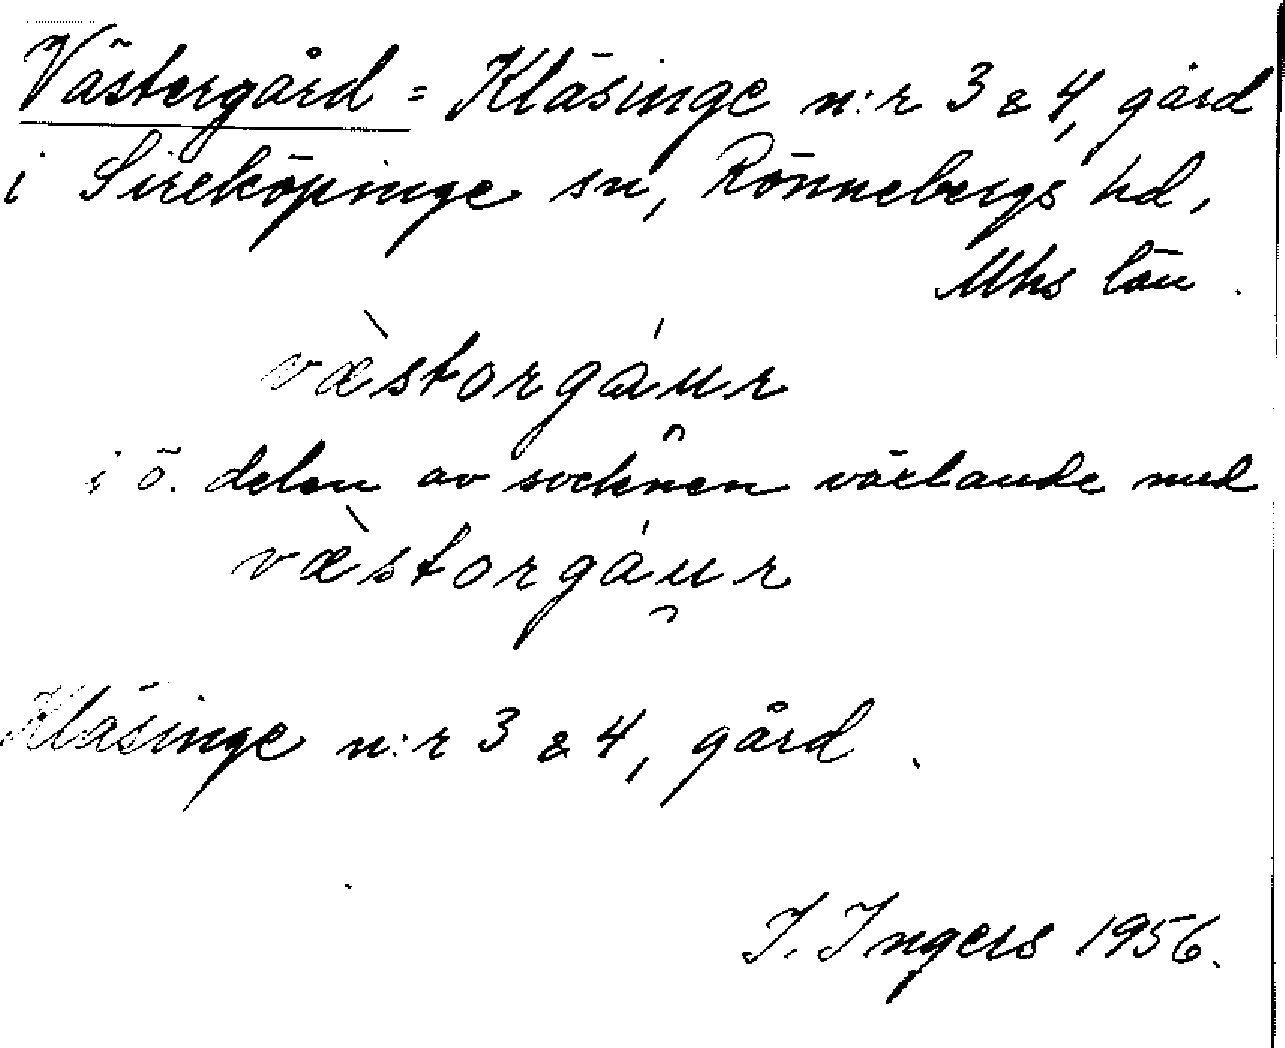 Västergård = Kläsinge n:r 3 & 4, gård
i Sireköpinge sn, Rönnebergs hd,
Mhs län.
væ̀storgáu̯r
i ö. delen av socknen växlande med
væ̀storgáu̯r
Kläsinge n:r 3 & 4, gård.
I. Ingers 1956.